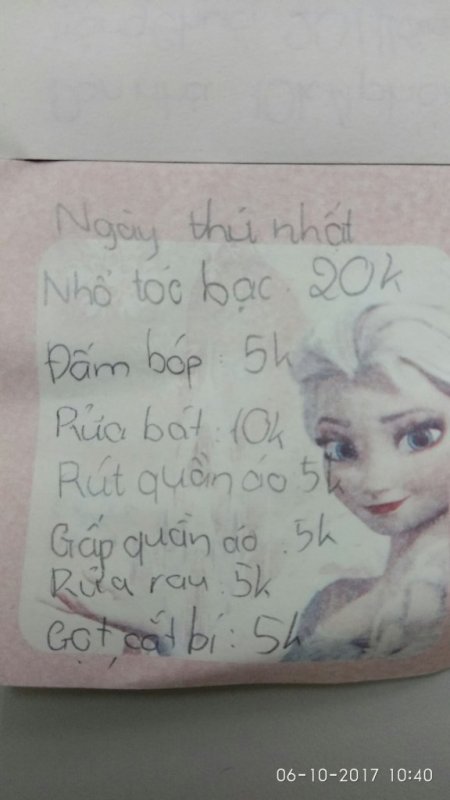 Ngày thứ nhất
Nhổ tóc bạc. 20k
Đấm bóp: 5k
Rửa bát: 10k
Rút quần áo 5k
Gấp quần áo: 5k
Rửa rau: 5k
Gọt, cắt bí: 5k
06-10-2017 10:40